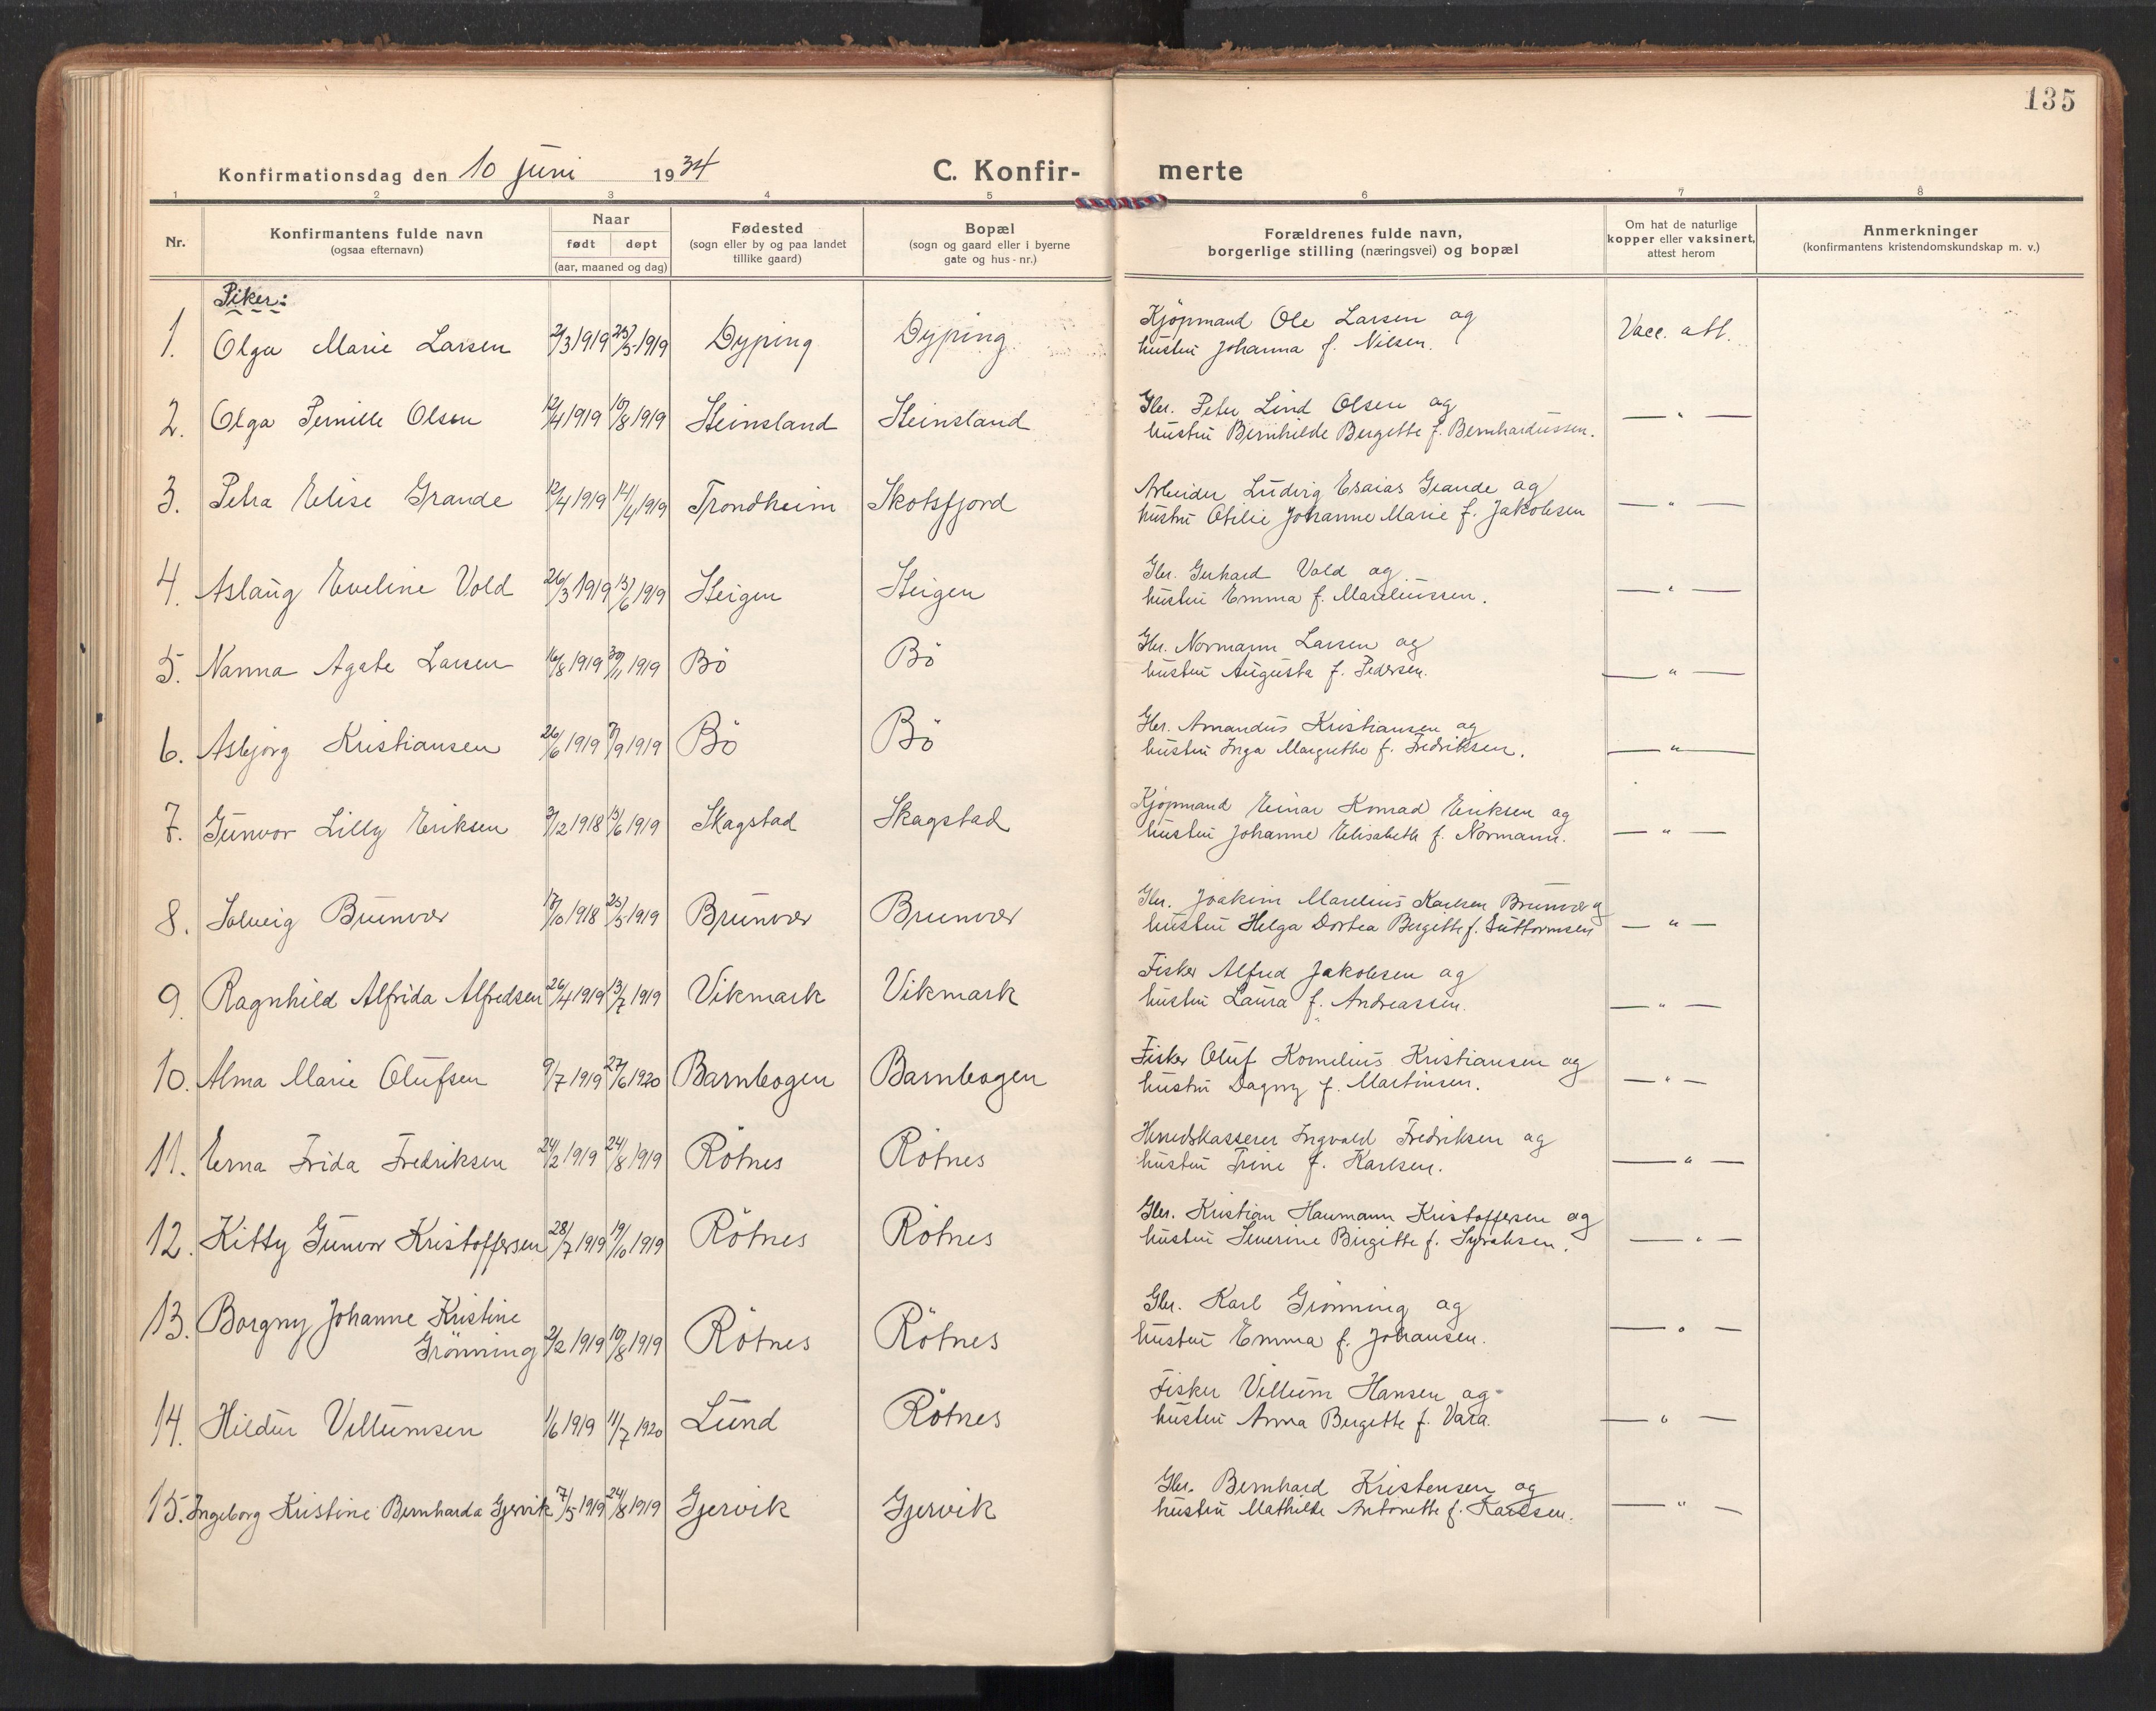 135
Konfirmationsdag den 10 juni 1934
C. Konfir- merte
1 2 3 4 5 6 7 8
Nr.
Konfirmantens fulde navn
(ogsaa efternavn)
Naar
født døpt
(aar, maaned og dag)
Fødested
(sogn eller by og paa landet
tillike gaard)
Bopæl
(sogn og gaard eller i byerne
gate og hus-nr.)
Forældrenes fulde navn,
borgerlige stilling (næringsvei) og bopæl
Om hat de naturlige
kopper eller vaksinert,
attest herom
Anmerkninger
(konfirmantens kristendomskundskap m. v.)
Piker:
1. Olga Marie Larsen 2/3 1919 25/5 1919 Dyping Dyping
Kjöpmand Ole Larsen og
hustru Johanna f. Nilsen.
Vacc. att.
2. Olga Pernille Olsen 12/4 1919 10/8 1919 Steinsland Steinsland
Gbr. Peter Lind Olsen og
hustru Bernhilde Bergette f. Bernhardussen.
— " —
3. Petra Elise Grande 12/4 1919 14/4 1919 Trondheim Skotsfjord
Arbeider Ludvig Esaias Grande og
hustru Otilie Johanne Marie f. Jakobsen
— " —
4. Aslaug Eveline Vold 26/3 1919 13/6 1919 Steigen Steigen
Gbr. Gerhard Vold og
hustru Emma f. Mareliussen.
— " —
5. Nanna Agate Larsen 16/8 1919 30/11 1919 Bö Bö
Gbr. Normann Larsen og
hustru Augusta f. Pedersen.
— " —
6. Asbjörg Kristiansen 26/6 1919 7/9 1919 Bö Bö
Gbr. Amandus Kristiansen og
hustru Inga Margrethe f. Fredriksen.
— " —
7. Gunvor Lilly Eriksen 3/12 1918 13/6 1919 Skagstad Skagstad
Kjöpmand Einar Konrad Eriksen og
hustru Johanne Elisabeth f. Normann.
— " —
8. Solveig Brunvær 17/10 1918 25/5 1919 Brunvær Brunvær
Gbr. Joakim Marelius Karlsen Brunvær og
hustru Helga Dortea Bergitte f. Guttormsen
— " —
9. Ragnhild Alfrida Alfredsen 26/4 1919 13/7 1919 Vikmark Vikmark
Fisker Alfred Jakobsen og
hustru Laura f. Andreassen.
— " —
10. Alma Marie Olufsen 9/7 1919 27/6 1920 Barnbogen Barnbogen
Fisker Oluf Kornelius Kristiansen og
hustru Dagny f. Martinsen.
— " —
11. Erna Frida Fredriksen 24/2 1919 24/8 1919 Rötnes Rötnes
Herredskasserer Ingvald Fredriksen og
hustru Trine f. Karlsen.
— " —
12. Kitty Gunvor Kristoffersen 28/7 1919 19/10 1919 Rötnes Rötnes
Gbr. Kristian Haumann Kristoffersen og
hustru Severine Birgitte f. Syvaksen.
— " —
13. Borgny Johanne Kristine
Grönning 2/2 1919 10/8 1919 Rötnes Rötnes
Gbr. Karl Grönning og
hustru Emma f. Johansen.
— " —
14. Hildur Villumsen 1/6 1919 11/7 1920 Lund Rötnes
Fisker Villum Hansen og
hustru Anna Bergette f. Vara.
— " —
15. Ingeborg Kristine Bernharda Gjervik 7/5 1919 24/8 1919 Gjervik Gjervik
Gbr. Bernhard Kristensen og
hustru Mathilde Antonette f. Karlsen.
— " —